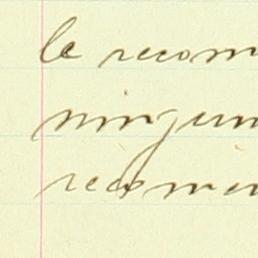 le recom
ningun
recomen